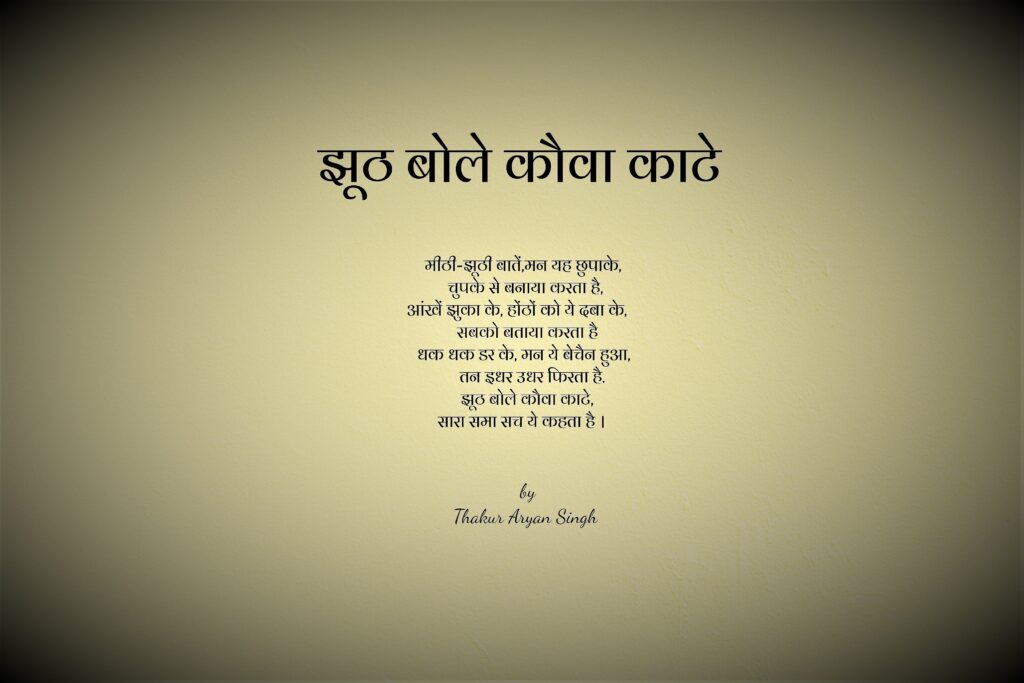 झूठ बोले कौवा काटे
मीठी-झूठी बातें,मन यह छुपाके,
चुपके से बनाया करता है,
आंखें झुका के, होंठों को ये दबा के,
सबको बताया करता है
धक धक डर के, मन ये बेचैन हुआ,
तन इधर उधर फिरता है.
झूठ बोले कौवा काटे,
सारा समा सच ये कहता है ।
by
Thakur Aryan Singh